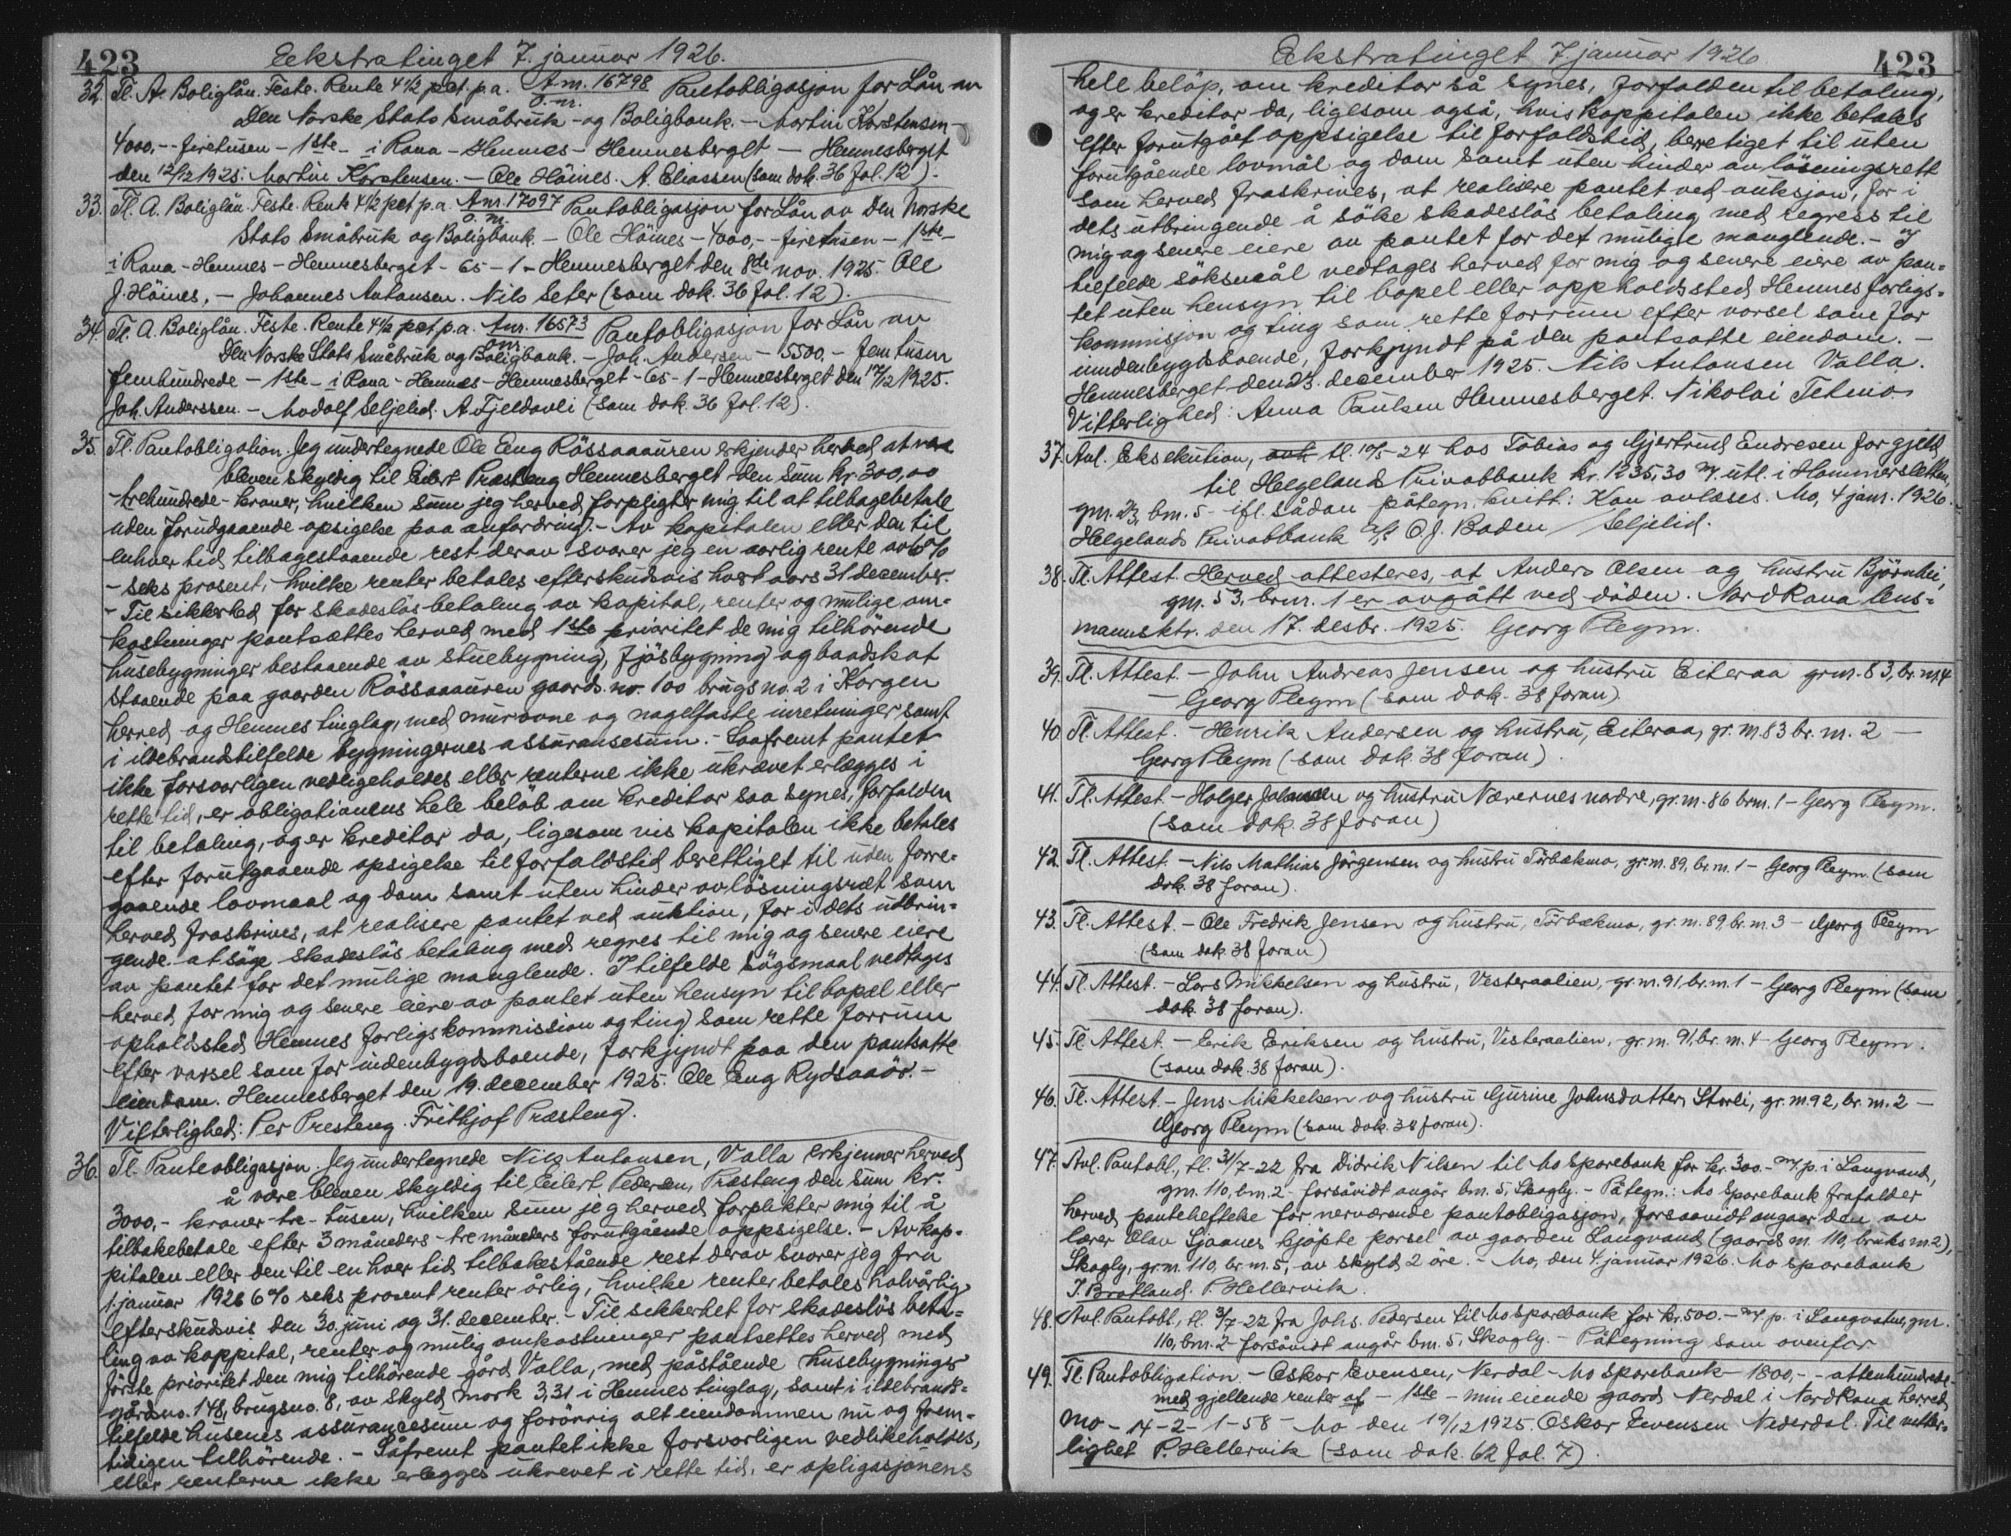 423
Eekstratinget 7. januar 1926.
32. Tl. A. Boliglån. Feste. Rente 4 1/2 pct. p.a. Anr. 16798 Pantobligasjon for Lån av
O. nr.
Den Norske Stats Småbruk- og Boligbank. - Martin Korstensen -
4000,- - firetusen - 1ste - i Rana - Hemnes - Hemnesberget - Hemnesberget
den 12/12 1925. Martin Korstensen. - Ole Höines. A. Eliassen (som dok. 36 fol. 12).
33. Tl. A. Boliglån. Feste. Rente 4 1/2 pct p.a. Anr. 17097 Pantobligasjon for Lån av Den Norske
O. nr.
Stats Småbruk og Boligbank. - Ole Höines - 4000,- - firetusen - 1ste -
i Rana - Hemnes - Hemnesberget - 65 - 1 - Hemnesberget den 8de nov. 1925. Ole
J. Höines, - Johannes Antonsen. Nils Seter (som dok. 36 fol. 12).
34. Tl. A. Boliglån. Feste. Rente 4 1/2 pct. p.a. Anr. 16573 Pantobligasjon for Lån av
onr.
Den Norske Stats Småbruk og Boligbank. - Joh. Andersen - 5500.- femtusen
femhundrede - 1ste - i Rana - Hemnes - Hemnesberget - 65 - 1 - Hemnesberget den 17/12 1925.
Joh. Anderssen. - Modolf Seljelid. A. Fjeldavli (som dok. 36 fol. 12).
35. Tl. Pantobligation. Jeg undertegnede Ole Eng Rössaaauren erkjender herved at
bleven skyldig til Eilert Præsteng Hemnesberget den sum kr. 300,00
- trehundrede - kroner, hvilken sum jeg herved forpligter mig til at tilbagebetale
uden forudgaaende opsigelse paa anfordring. - Av kapitalen eller den til
enhver tid tilbagestaaende rest derav svarer jeg en aarlig rente av 6%
- seks prosent, hvilke renter betales efterskudsvis hvert aars 31 december.
- Til sikkerhed for skadeslös betaling av kapital, renter og mulige om-
kostninger pantsættes herved med 1ste prioritet de mig tilhörende
husebygninger bestaaende av stuebygning, fjösbygning og baadskot
staaende paa gaarden Rössaaauren gaards. no. 100 brugs no. 2 i Korgen
herred og Hemnes tinglag, med murovne og nagelfaste inretninger samt
i ildebrandstilfelde bygningernes assuransesum. - Saafremt pantet
ikke forsvarligen vedligeholdes eller renterne ikke ukrævet erlægges i
rette tid, er obligationens hele belöb om kreditor saa synes, forfalden
til betaling, og er kreditor da, ligesom vis kapitalen ikke betales
efter forutgaaende opsigelse til forfaldstid berettiget til uden forre-
gaaende lovmaal og dom samt uten hinder av lösningsræt som
herved fraskrives, at realisere pantet ved auktion, for i dets utbrin-
gende at söge skadeslös betaling med regres til mig og senere eiere
av pantet for det mulige manglende. I tilfelde sögsmaal vedtages
herved for mig og senere eiere av pantet uten hensyn til bopæl eller
opholdssted Hemnes forligskommission og ting som rette forrum
efter varsel som for indenbygdsboende, forkjyndt paa den pantsatte
eiendom. Hemnesberget den 19. december 1925. Ole Eng Rydsaaör. -
Vitterlighed: Per Presteng. Frithjof Præsteng.
36. Tl. Panteobligasjon. Jeg undertegnede Nils Antonsen, Valla erkjenner herved
å være bleven skyldig til Eilert Pedersen, Præsteng den sum kr.
3000,- kroner - tre - tusen, hvilken sum jeg herved forplekter mig til å
tilbakebetale efter 3 måneders - tre måneders forutgående oppsigelse. - Av kap-
pitalen eller den til en hver tid tilbakestående rest derav svarer jeg fra
1. januar 1926 6% seks prosent renter årlig, hvilke renter betales halvårlig
efterskudsvis den 30. juni og 31. december. - Til sikkerhet for skadeslös beta-
ling av kappital, renter og mulig omkostninger pantsettes herved med
förste prioritet den mig tilhörende gård Valla, med påstående husebygninger
gårdsno. 148, brugsno. 8, av skyld mark 3,31 i Hemnes tinglag, samt i ildebrands-
tilfelde husenes assurancesum og forövrig alt eiendommen nu og frem-
tidigen tilhörende. - Såfremt pantet ikke forsvarligen vedlikeholdes,
eller renterne ikke erlegges ukrevet i rette tid, er opligasjonens
423
Ekstratinget 7 januar 1926
hele belöp, om kreditor så synes, forfalden til betaling,
og er kreditor da, ligesom også, hvis kappitalen ikke betales
efter forutgåt oppsigelse til forfaldstid, berretiget til uten
forutgående lovmål og dom samt uten hinder av lösningsrett
som herved fraskrives, at realisere pantet ved auksjon, for i
dets utbringende å söke skadeslös betaling med regress til
mig og senere eiere av pantet for det mulige manglende. - I
tilfelde söksmål vedtages herved for mig og senere eiere av pan-
tet uten hensyn til bopel eller oppholdssted Hemnes forligs-
kommisjon og ting som rette forrum efter varsel som for
inndenbygdsboende, forkjyndt på den pantsatte eiendom. -
Hemnesberget den 23. december 1925. Nils Antonsen Valla.
Vitterlighed: Anna Paulsen Hemnesberget. Nikolai Tetmo
37. Avl. Eksekution, tl. 10/5-24 hos Tobias og Gjertrud Endresen for gjeld
til Helgelands Privatbank kr. 1235,30 m. utl. i Hammersletten,
gnr. 23, bnr. 5 - ifl. sådan påtegn. kvitt: Kan avlæses. Mo, 4 janr. 1926.
Helgelands Privatbank A/S O. J. Baden / Seljelid.
38. Tl. Attest. Herved attesteres, at Anders Olsen og hustru Björnhei,
gnr. 53, brnr. 1 er avgått ved döden. Nord Rana lens-
mannsktr. den 17. desbr. 1925. Georg Pleym.
39. Tl. Attest. - John Andreas Jensen og hustru Eiteraa grnr. 83, br. nr. 4
- Georg Pleym (som dok. 38 foran)
40. Tl. Attest. - Henrik Andersen og hustru, Eiteraa, gr. nr. 83 br. nr. 2 -
Georg Pleym (som dok. 38 foran).
41. Tl. Attest. - Holger Johansen og hustru Nævernes nordre, gr. nr. 86 brnr. 1 - Georg Pleym.
(som dok. 38 foran)
42. Tl. Attest. - Nils Mathias Jörgensen og hustru Törbækmo, gr. nr. 89, br. nr. 1 - Georg Pleym (som
dok. 38 foran).
43. Tl. Attest. - Ole Fredrik Jensen og hustru, Törbækmo, gr. nr. 89, br. nr. 3 - Georg Pleym
(som dok. 38 foran)
44. Tl. Attest. - Lars Mikkelsen og hustru, Vesteraalien, gr. nr. 91, br. nr. 1 - Georg Pleym (som
dok. 38 foran).
45. Tl. Attest. - Erik Eriksen og hustru, Vesteraalien, gr. nr. 91, br. nr. 4 - Georg Pleym.
(som dok. 38 foran).
46. Tl. Attest. - Jens Mikkelsen og hustru Gurine Johnsdatter, Storli, gr. nr. 92, br. nr. 2 -
Georg Pleym (som dok. 38 foran).
47. Avl. Pantobl., tl. 31/7-22 fra Didrik Nilsen til Mo Sparebank for kr. 300.- m. p. i Langvand,
gnr. 110, bnr. 2 - forsåvidt angår bnr. 5, Skogly. - Påtegn.: Mo Sparebank frafalder
herved pantehefteke for nerværende pantobligasjon, forsaavidt angaar den av
lærer Olav Sjaanes kjöpte parsel av gaarden Langvand (gaards nr. 110, bruks nr. 2),
Skogly, gr. nr. 110, br. nr. 5, av skyld 2 öre. - Mo, den 4. januar 1926. Mo sparebank
J. Bratland. P. Hellervik.
48. Avl. Pantobl., tl. 3/7-22 fra Johs. Pedersen til Mo Sparebank for kr. 500.- m. p. i Langvatnes, gnr.
110, bnr. 2 - forsåvidt angår bnr. 5, Skogly. - Påtegning som ovenfor
49. Tl. Pantobligation. - Oskar Evensen, Nerdal - Mo Sparebank - 1800,- - attenhundrede -
med gjellende renter af - 1ste - min eiende gaard Nerdal i Nord Rana herred
Mo - 14 - 2 - 1 - 58 - Mo den 19/12 1925. Oskar Evensen Nederdal. Til vitter-
lighet P. Hellervik (som dok. 62 fol. 7).